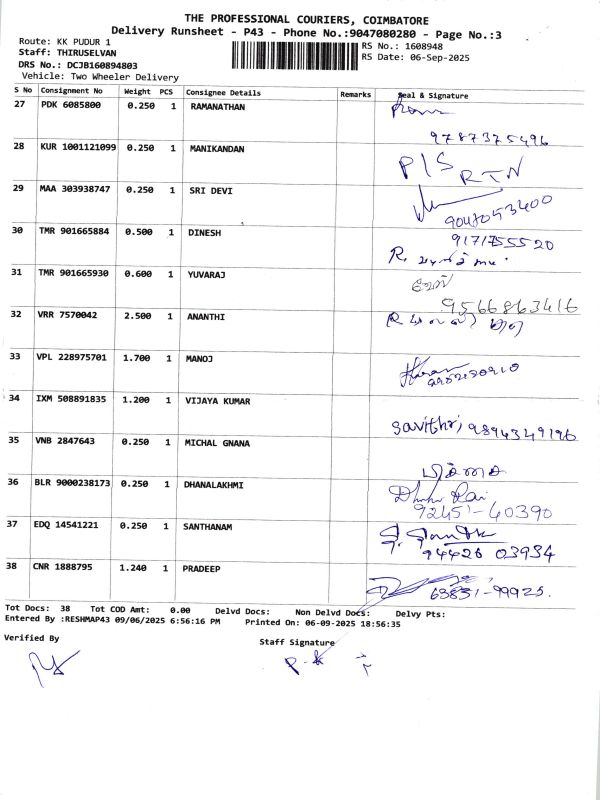 THE PROFESSIONAL COURIERS, COIMBATORE
Delivery Runsheet - P43 - Phone No.:9047080280 - Page No.:3
Route: KK PUDUR 1
RS No.: 1608948
Staff: THIRUSELVAN
RS Date: 06-Sep-2025
DRS No.: DCJB160894803
Vehicle: Two Wheeler Delivery
S No Consignment No Weight PCS Consignee Details Remarks Seal & Signature
27 PDK 6085800 0.250 1 RAMANATHAN
9787375496
28 KUR 1001121099 0.250 1 MANIKANDAN
P/S RTN
29 MAA 303938747 0.250 1 SRI DEVI
9047053400
30 TMR 901665884 0.500 1 DINESH 9171755520
R.
31 TMR 901665930 0.600 1 YUVARAJ
9566863416
32 VRR 7570042 2.500 1 ANANTHI
33 VPL 228975701 1.700 1 MANOJ
34 IXM 508891835 1.200 1 VIJAYA KUMAR
Savithri, 9894349196
35 VNB 2847643 0.250 1 MICHAL GNANA
36 BLR 9000238173 0.250 1 DHANALAKHMI
92451-40390
37 EDQ 14541221 0.250 1 SANTHANAM
94426 03934
38 CNR 1888795 1.240 1 PRADEEP
63851-99925.
Tot Docs: 38 Tot COD Amt: 0.00 Delvd Docs: Non Delvd Docs: Delvy Pts:
Entered By :RESHMAP43 09/06/2025 6:56:16 PM Printed On: 06-09-2025 18:56:35
Verified By
Staff Signature